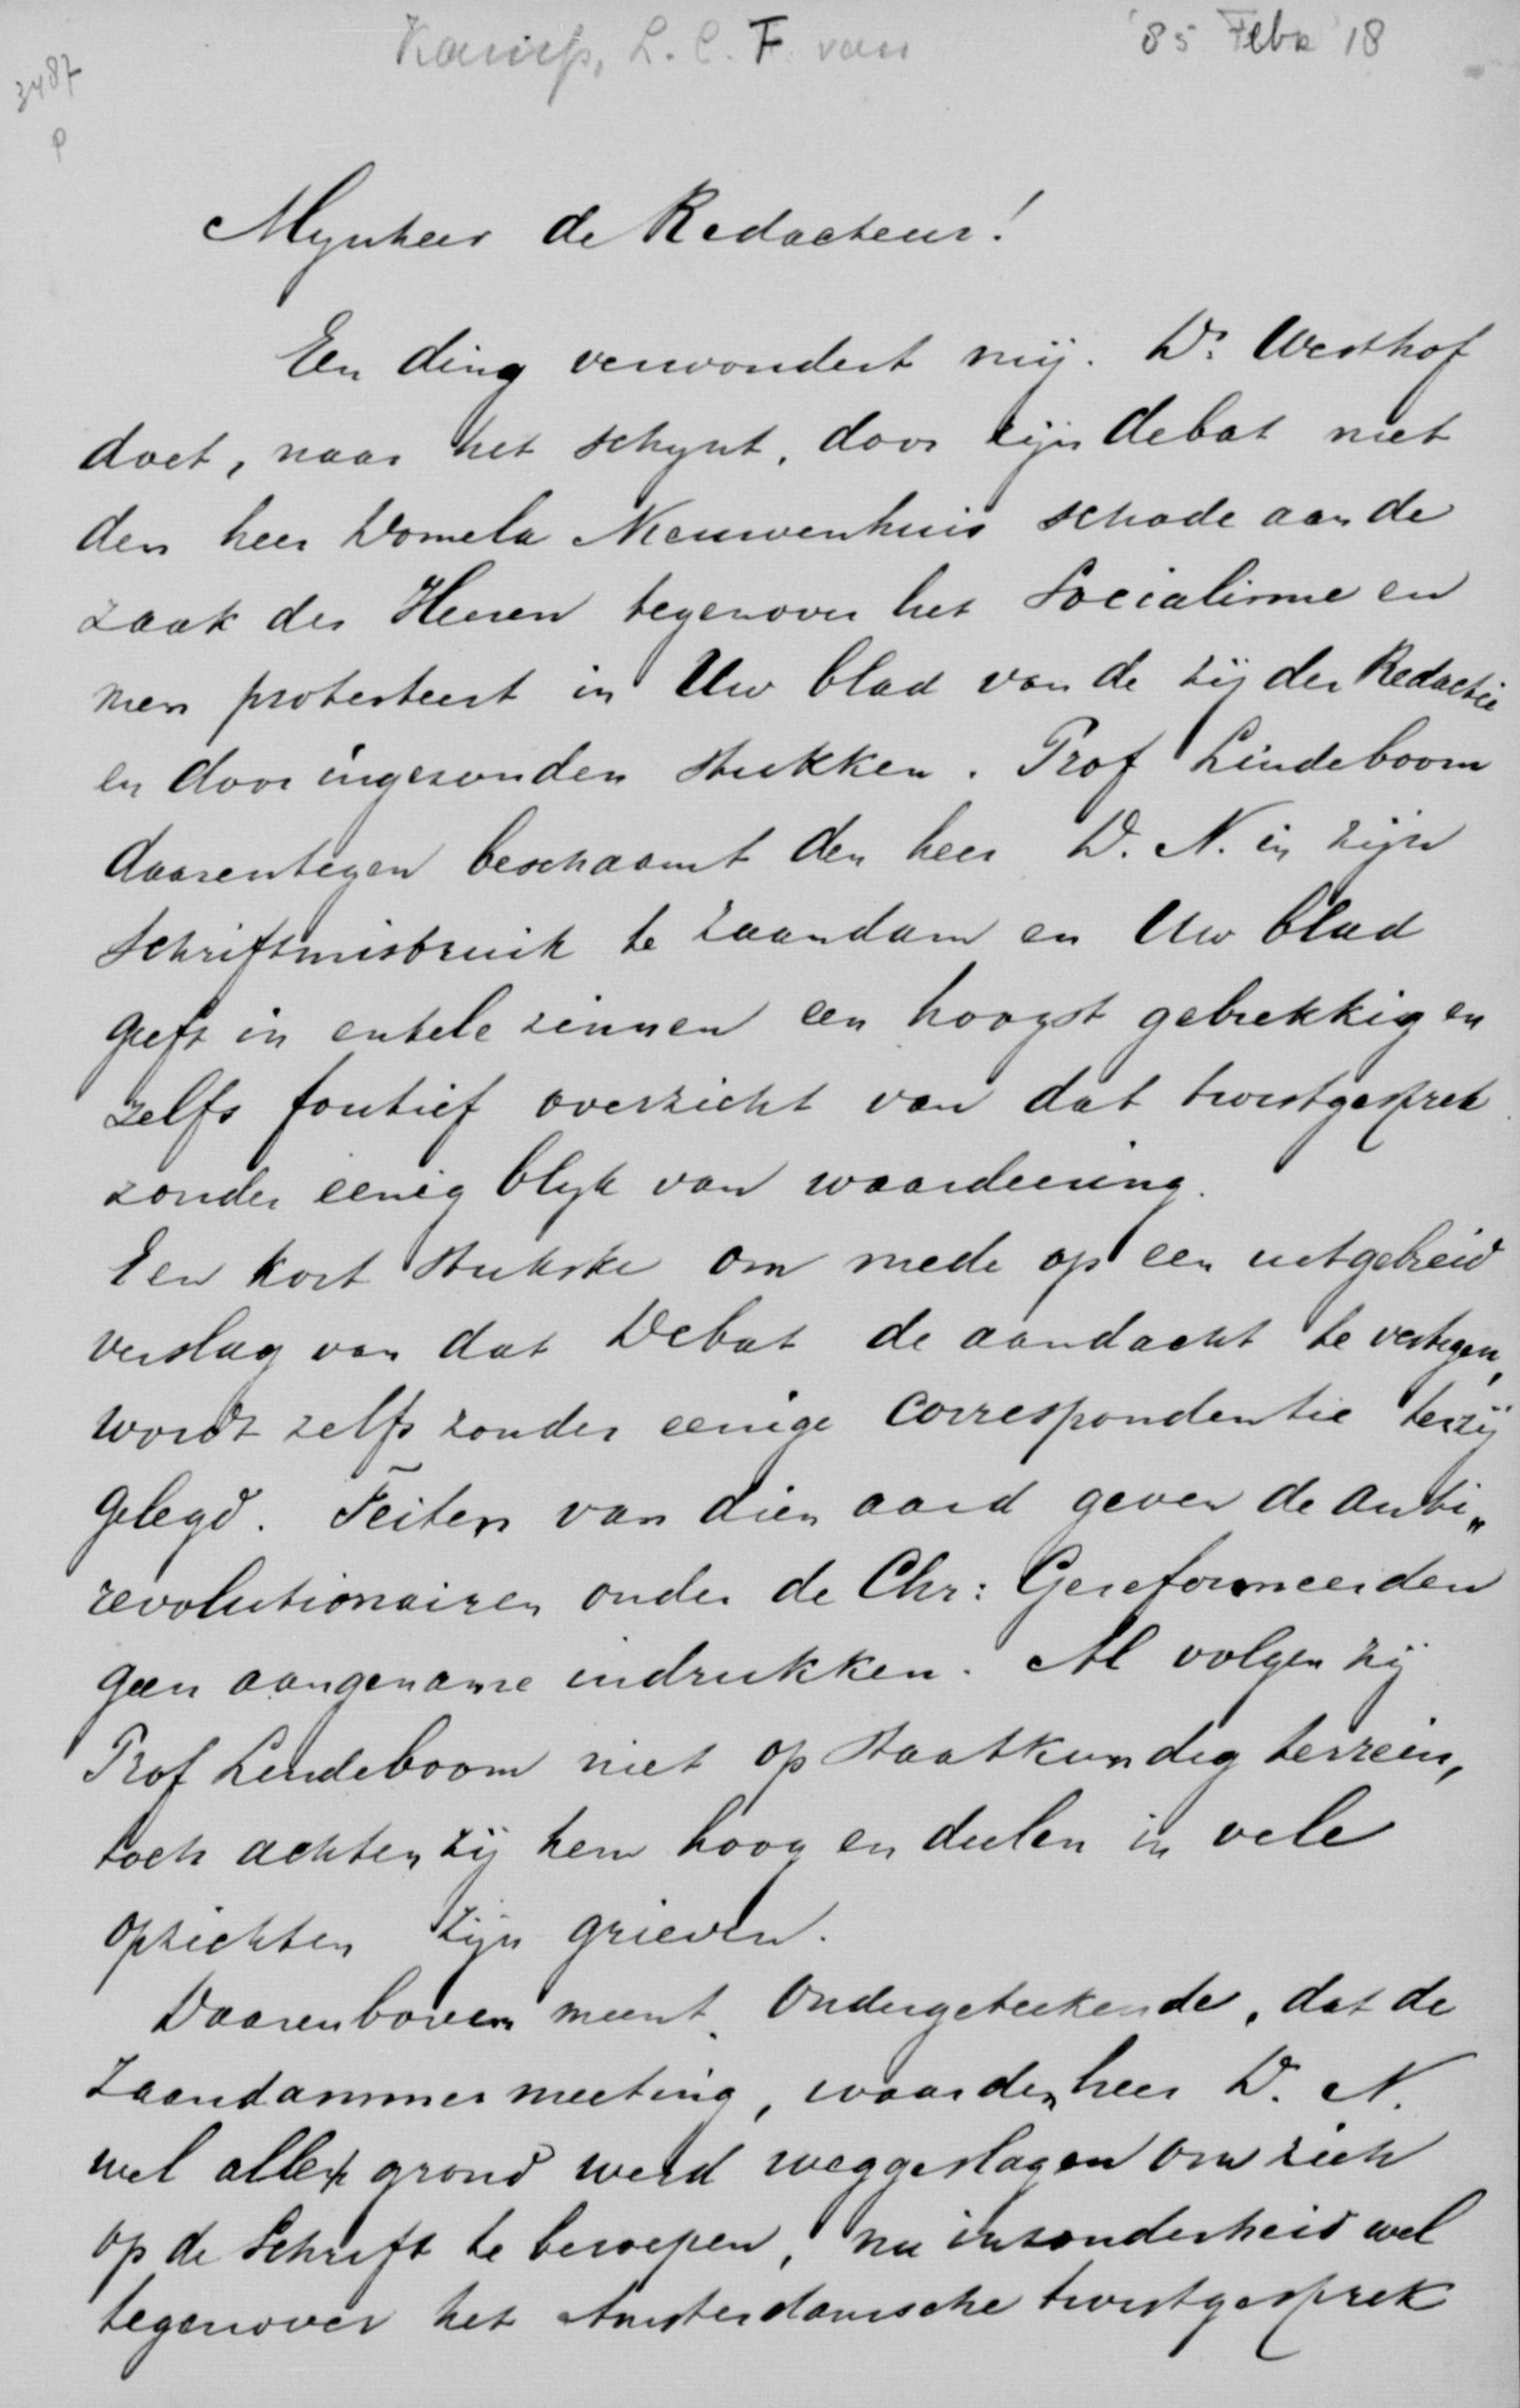 L. C. F. van '85 Feb 18
3487
p
Mynheer de Redacteur!
Een ding verwondert mij. Dr. Westhof
doet, naar het schynt, door zijn debat met
den heer Domela Nieuwenhuis schade aan de
zaak des Heeren tegenover het Socialisme en
men protesteert in Uw blad van de zij der Redactie
en door ingezonden stukken. Prof Lindeboom
daarentegen beschaamt den heer D. N. in zijn
Schriftmisbruik te Zaandam en Uw blad
geeft in enkele zinnen een hoogst gebrekkig en
zelfs foutief overzicht van dat twistgesprek
zonder eenig blyk van waardeering.
Een kort stukske om mede op een uitgebreid
verslag van dat Debat de aandacht te vestigen,
wordt zelfs zonder eenige correspondentie terzij
gelegd. Feiten van dien aard geven de anti„
revolutionairen onder de Chr: Gereformeerden
geen aangename indrukken. Al volgen zij
Prof Lindeboom niet op staatkundig terrein,
toch achten zij hem hoog en deelen in vele
opzichten zijn grieven.
Daarenboven meent Ondergeteekende, dat de
Zaandammer meeting, waar den heer D. N.
wel alle grond werd weggeslagen om zich
op de Schrift te beroepen, nu inzonderheid wel
tegenover het Amsterdamsche twistgesprek